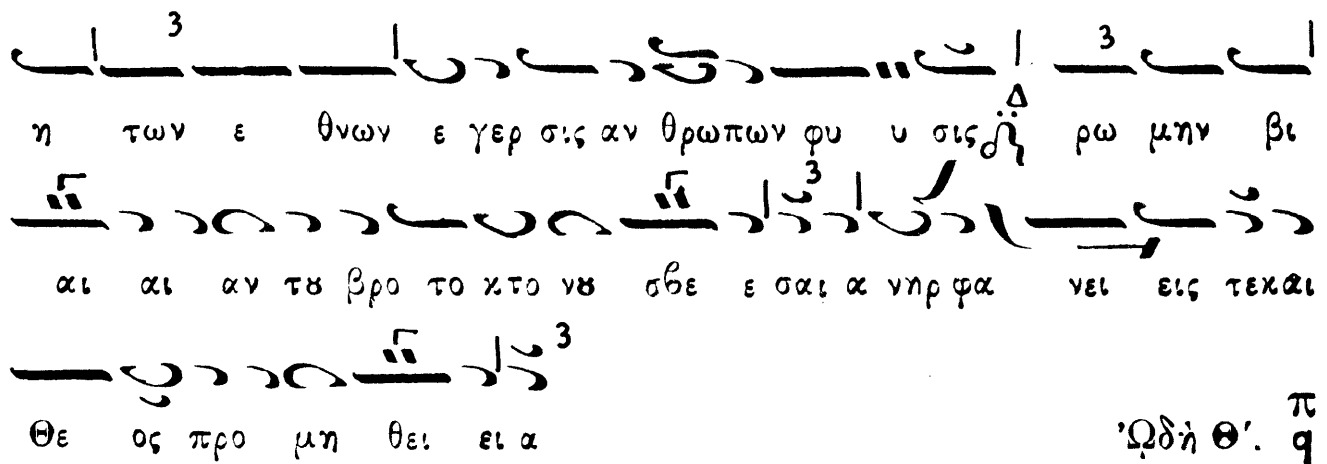 η των ε θνων ε γερ σις αν θρωπων φυ υ σις Δ ρω μην βι
αι αι αν τȣ βρο το κτο νȣ σβε ε σαι α νηρ φα νει εις τεκαι
Θε ος προ μη θει ει α
Ὠδὴ Θʹ. π q